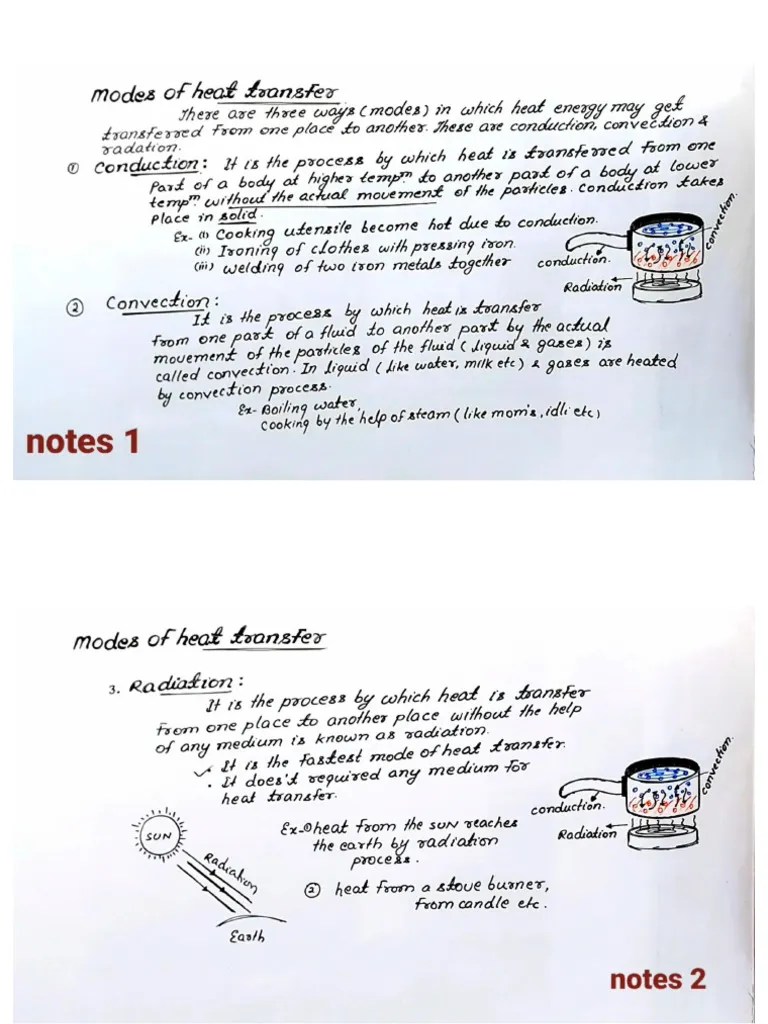 Modes of heat transfer
There are three ways (modes) in which heat energy may get
transferred from one place to another. These are conduction, convection &
radation.
① Conduction: It is the process by which heat is transferred from one
Part of a body at higher tempm to another part of a body at lower
tempm without the actual movement of the particles. Conduction takes
place in solid.
Ex- (i) Cooking utensile become hot due to conduction.
(ii) Ironing of clothes with pressing iron.
(iii) welding of two iron metals together
convection.
conduction.
Radiation
② Convection:
It is the process by which heat is transfer
from one part of a fluid to another part by the actual
movement of the particles of the fluid (liquid & gases) is
called convection. In liquid (like water, milk etc) & gases are heated
by convection process.
Ex- Boiling water,
cooking by the help of steam (like mom's, idli etc)
notes 1
Modes of heat transfer
3. Radiation:
It is the process by which heat is transfer
from one place to another place without the help
of any medium is known as radiation.
✓. It is the fastest mode of heat transfer.
. It does't required any medium for
heat transfer.
convection.
conduction.
Radiation
SUN
Radiation
Earth
Ex-① heat from the sun reaches
the earth by radiation
process.
② heat from a stove burner,
from candle etc.
notes 2